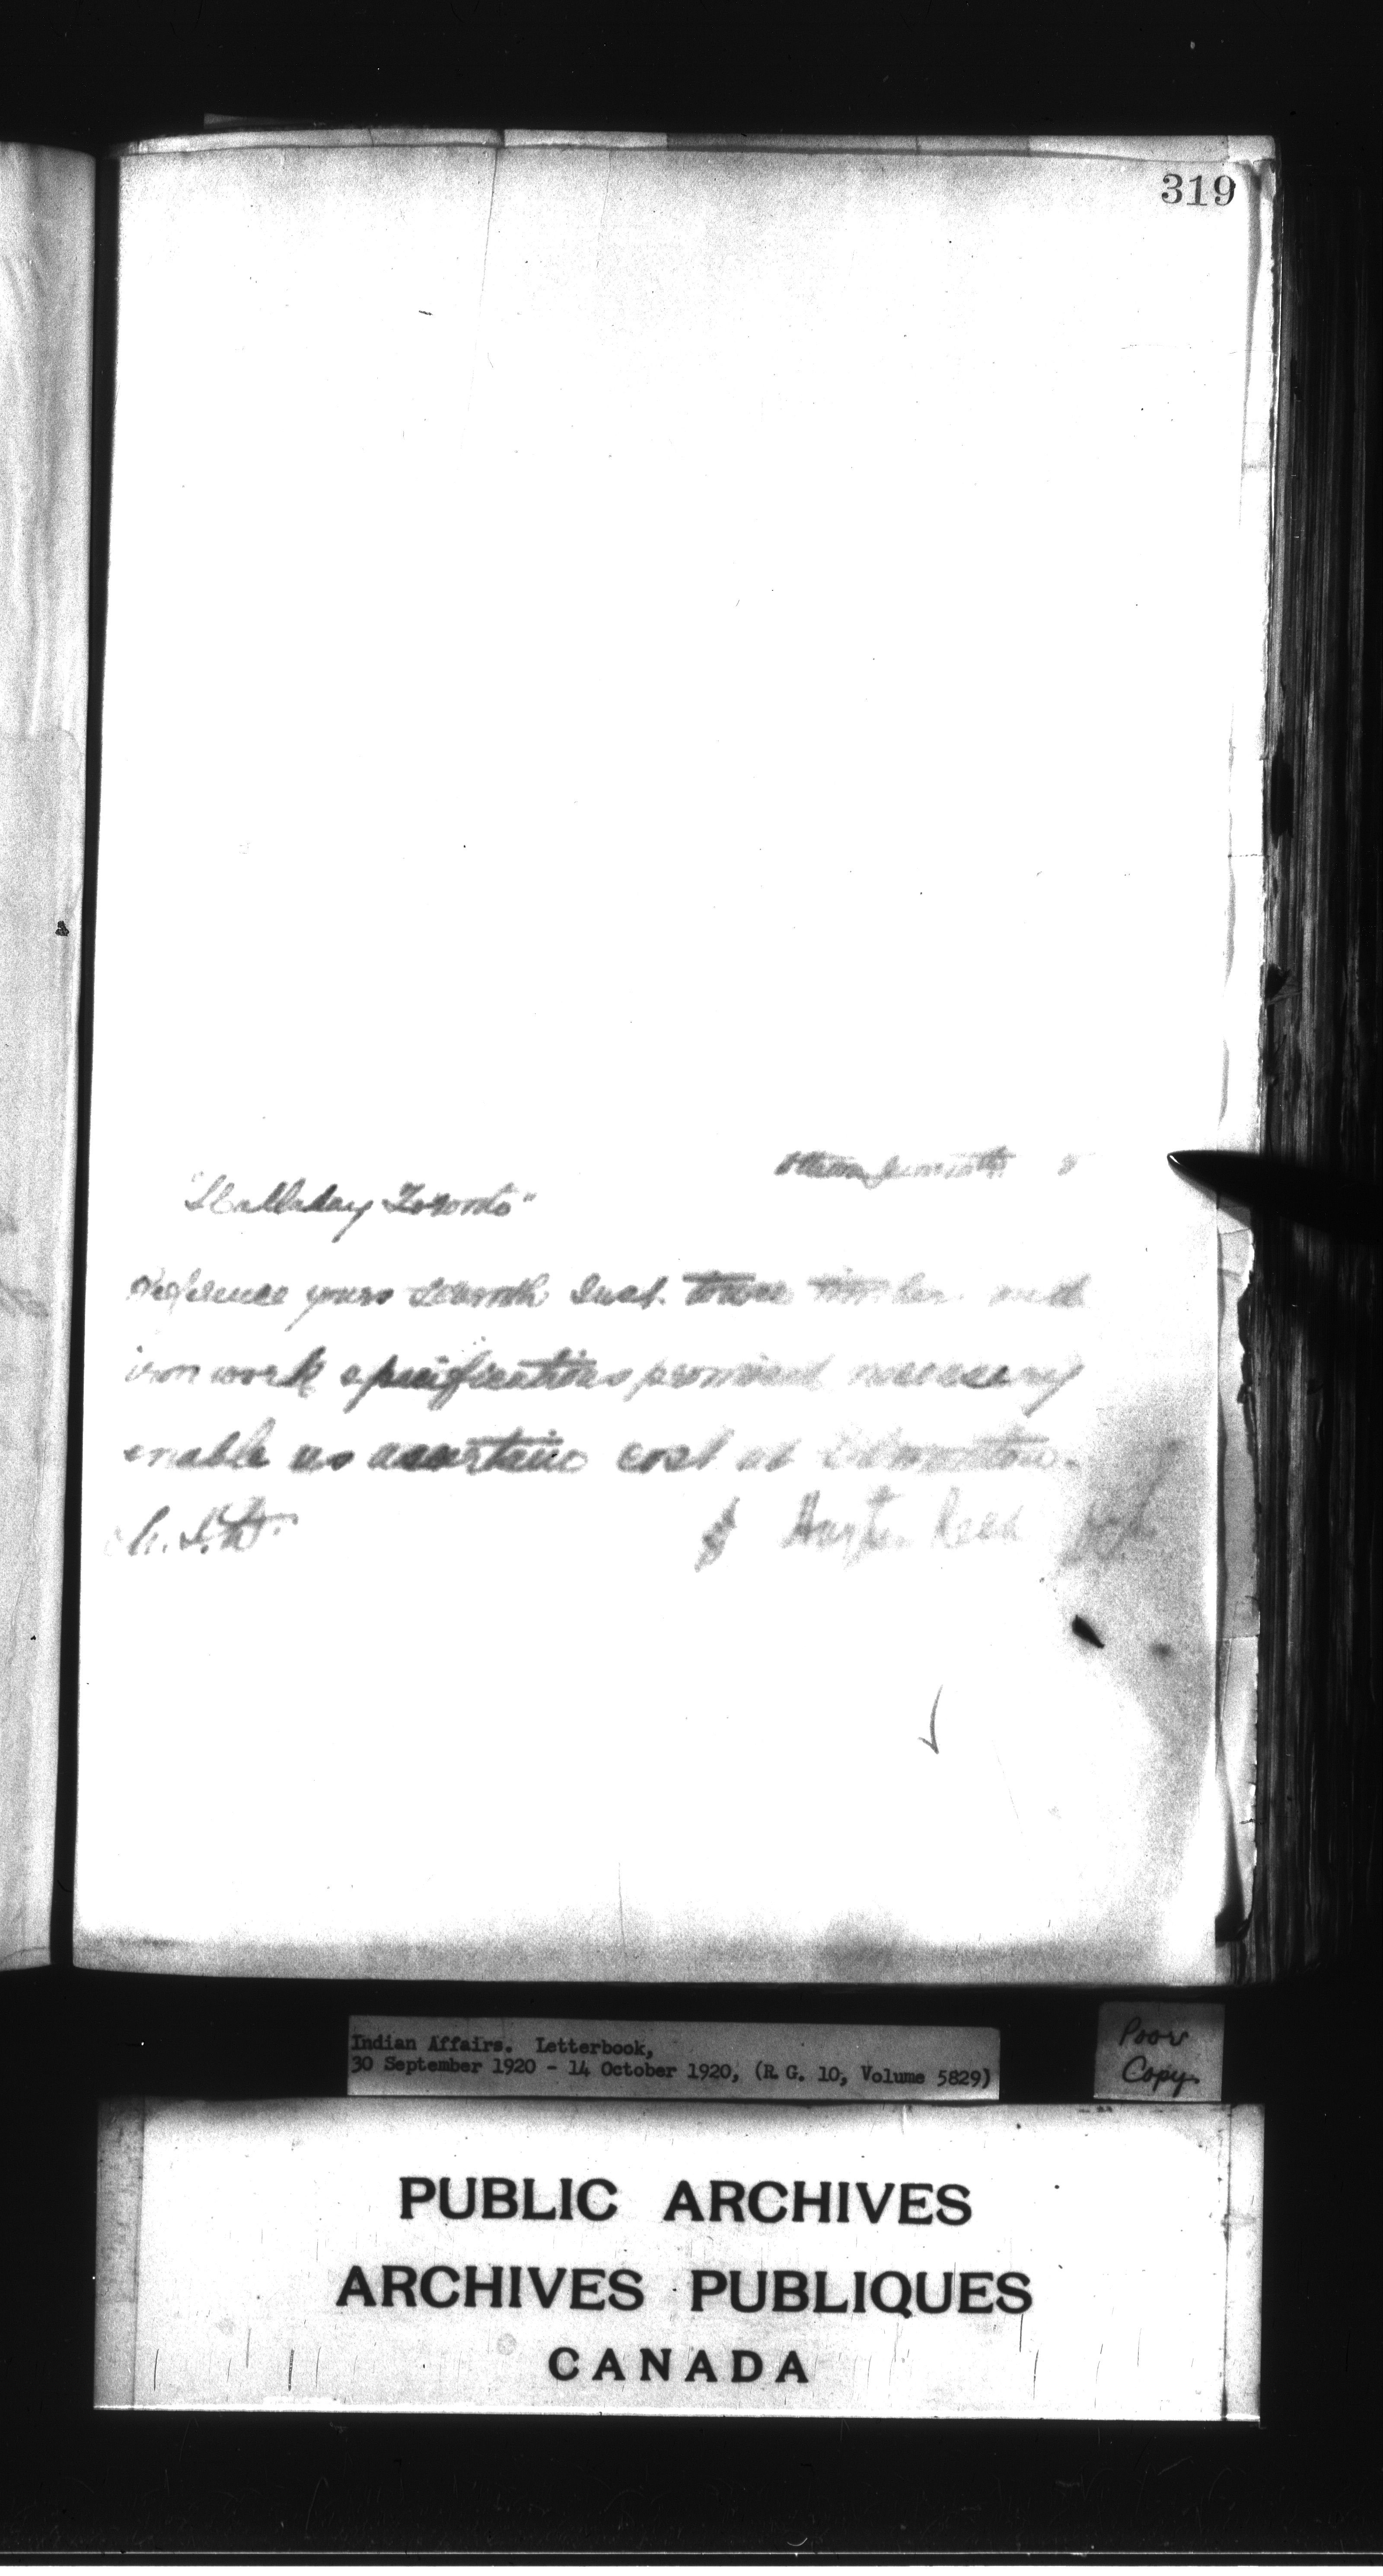 319
Ottawa
"Halladay Toronto"
Reference yours fourth Inst. tower timber and
iron work specifications promised necessary
enable us ascertain cost at Edmonton.
Hayter Reed
Indian Affairs. Letterbook,
30 September 1920 - 14 October 1920, (R.G. 10, Volume 5829)
Poor
Copy
PUBLIC ARCHIVES
ARCHIVES PUBLIQUES
CANADA